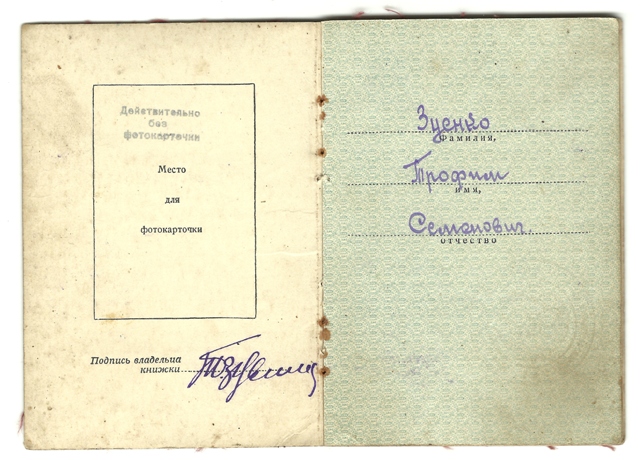 Действительно
без
фотокарточки
Место
для
фотокарточки
Подпись владельца
книжки
Зценко
фамилия,
Трофим
имя,
Семенович.
отчество